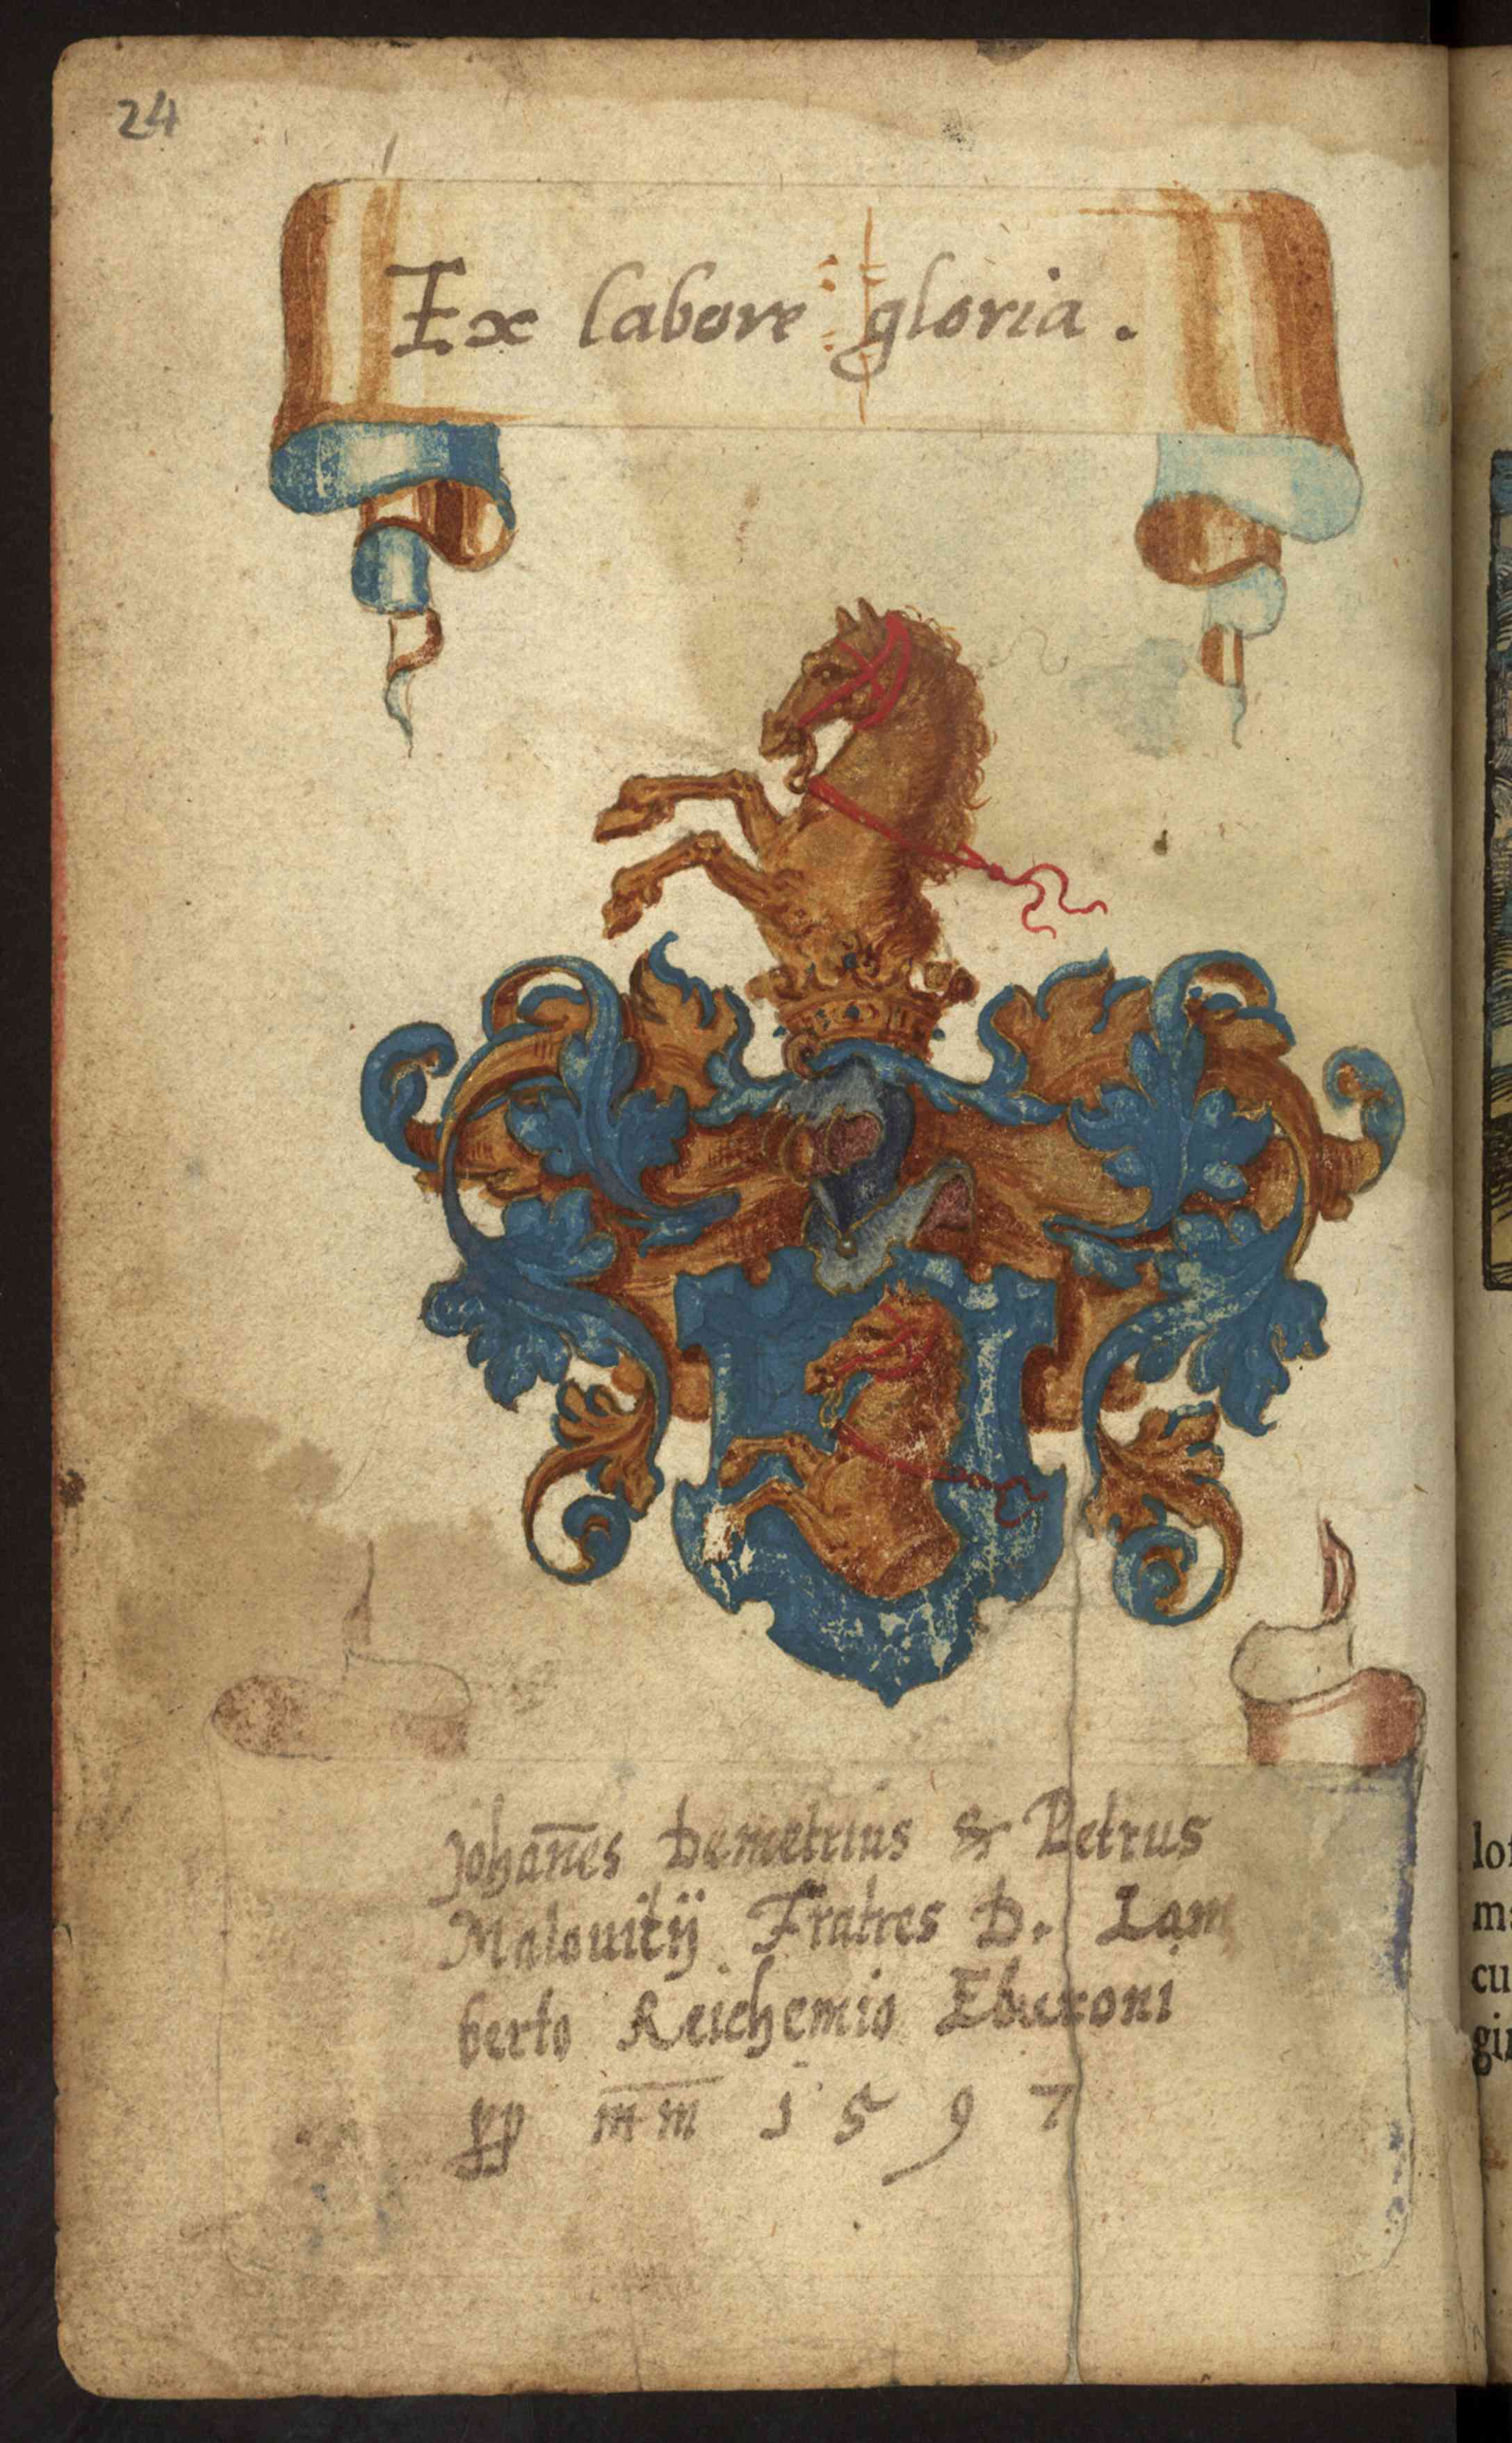 24
Ex labore gloria.
Johan̅es Demetrius & Petrus
Malouitij Fratres D. Lam
berto Reichemio Eburoni
pp m̅m̅ 1597
lo
m
cu
gi